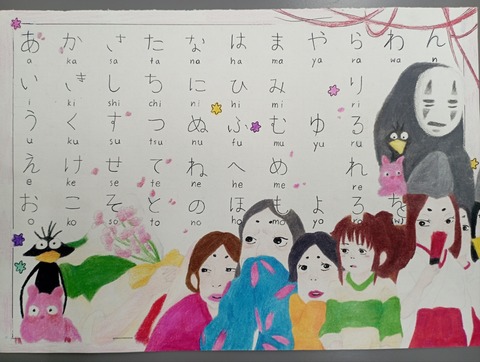 あ か さ た な は ま や ら わ ん
a ka sa ta na ha ma ya ra wa n
い き し ち に ひ み り
i ki shi chi ni hi mi ri
う く す つ ぬ ふ む ゆ る
u ku su tsu nu fu mu yu ru
え け せ て ね へ め れ
e ke se te ne he me re
お こ そ と の ほ も よ ろ を
o ko so to no ho mo yo ro